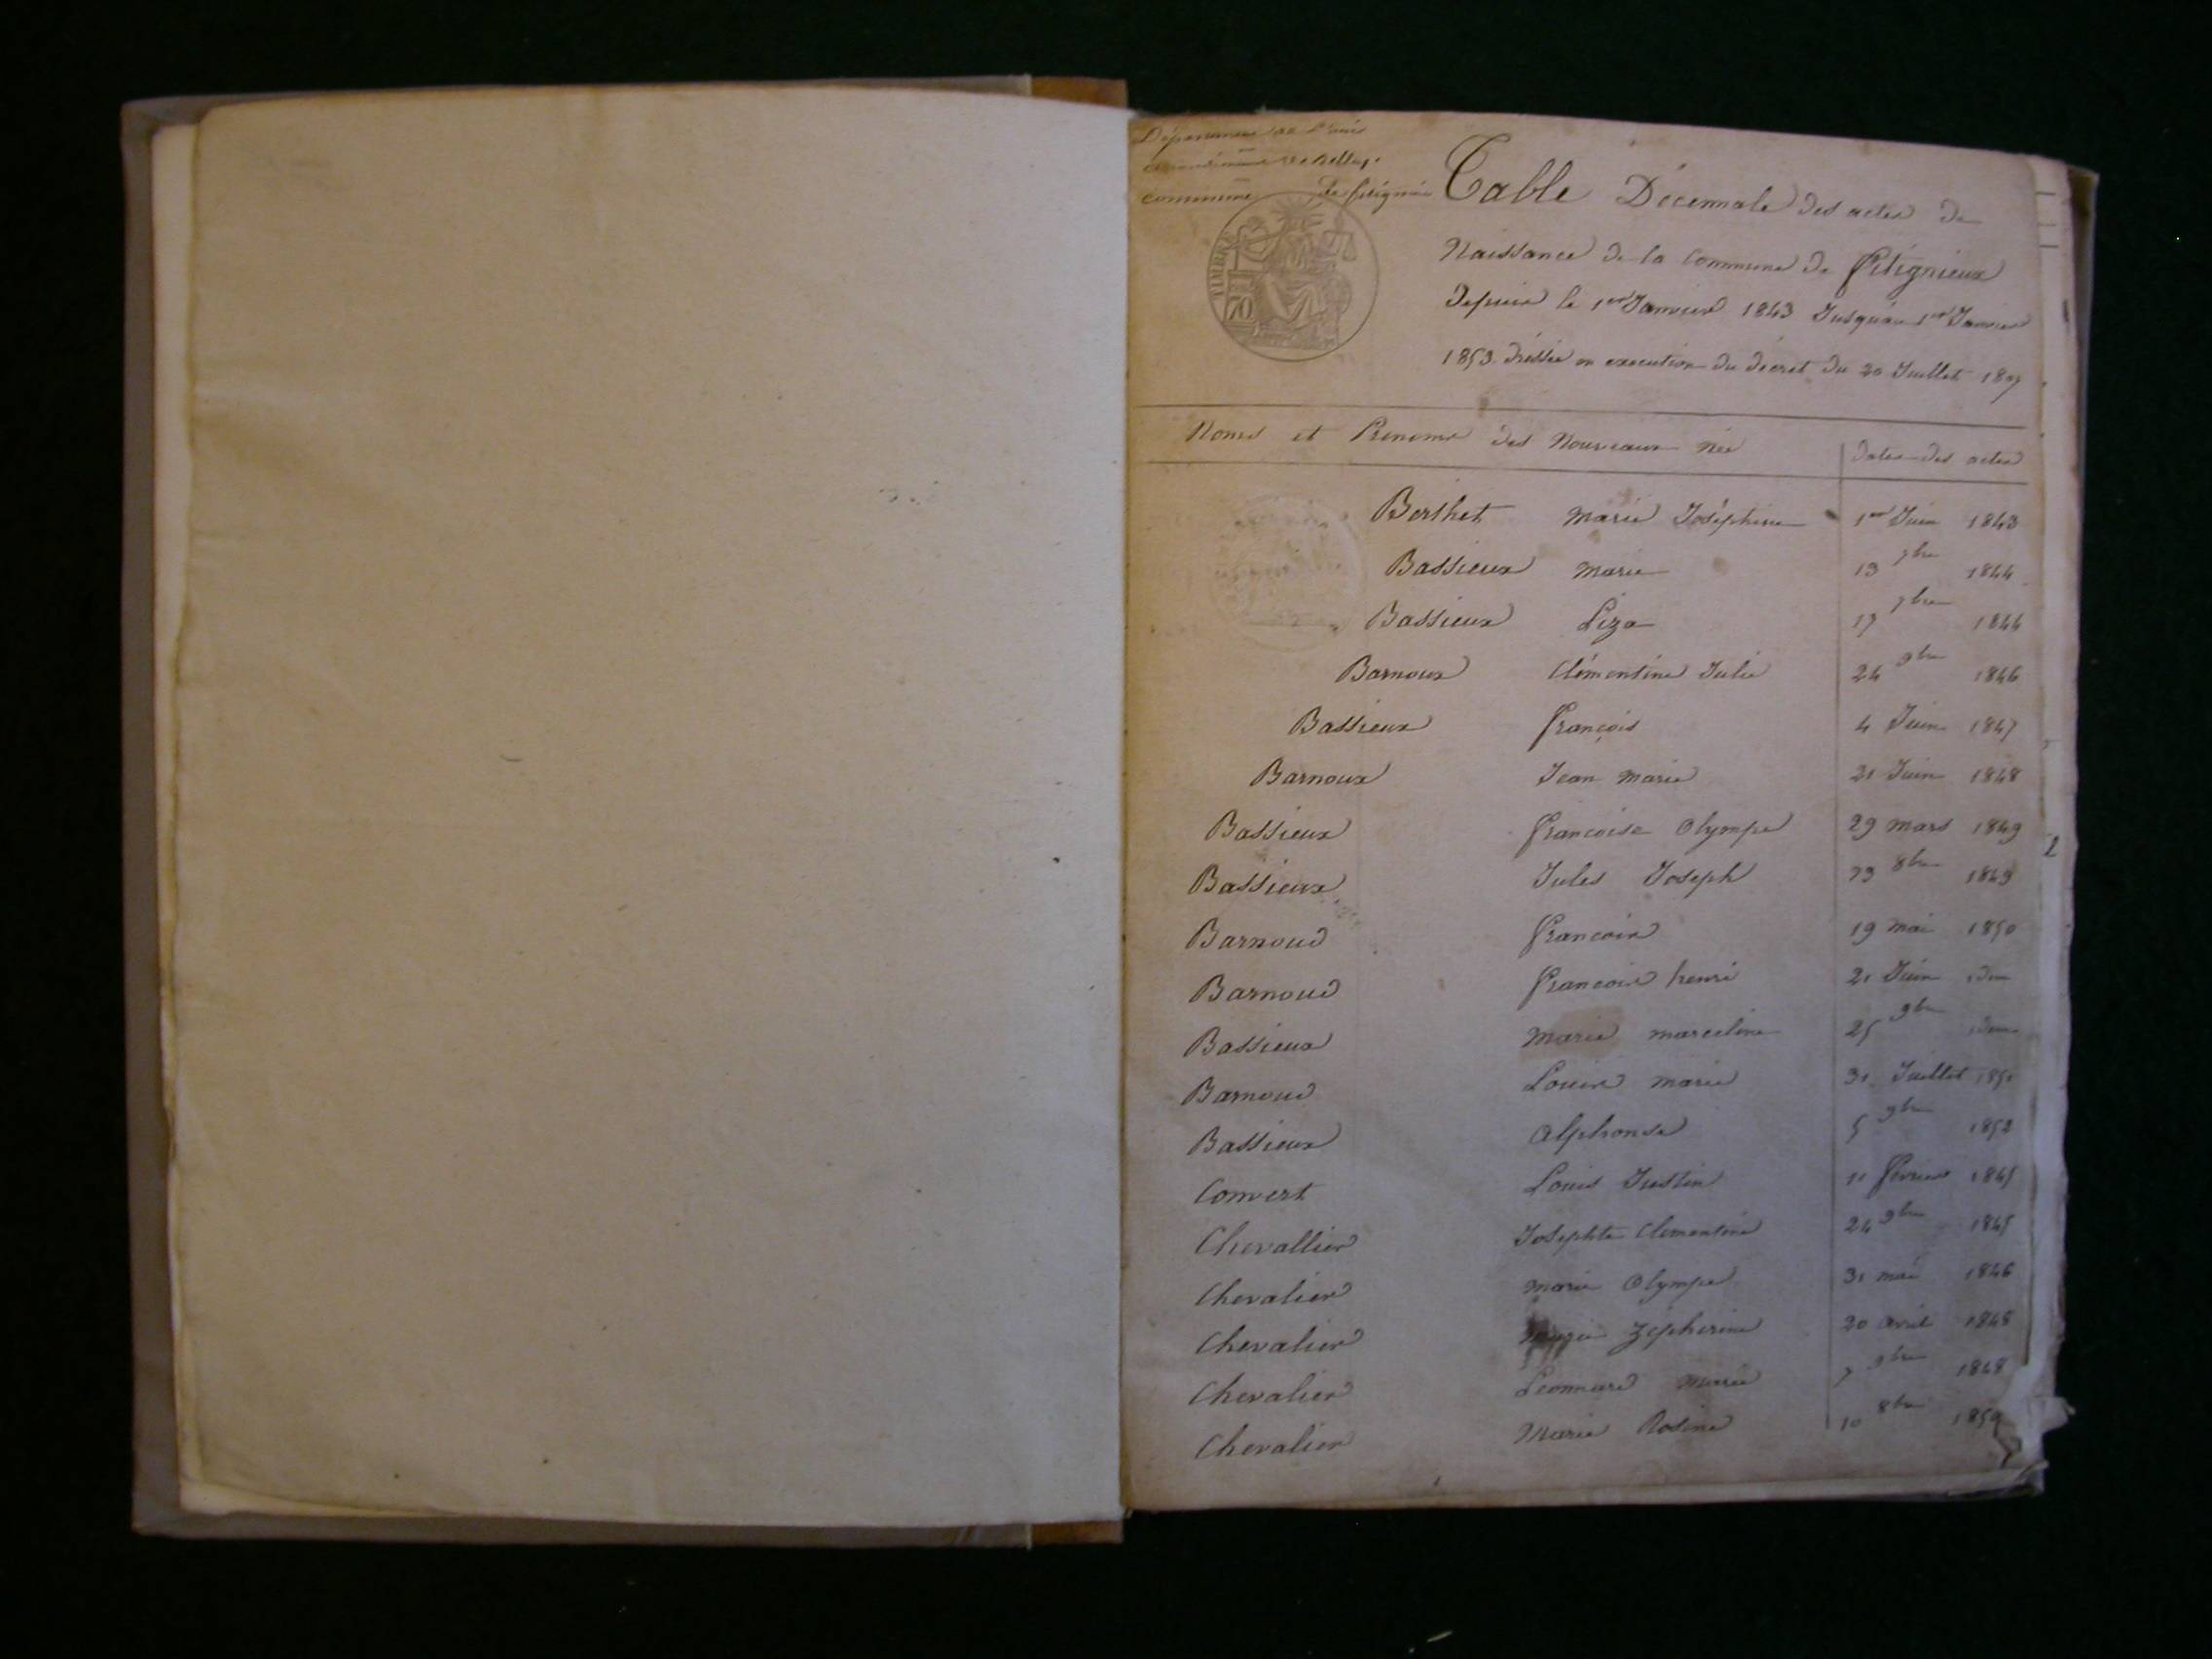 Département de l'ain
de Belley
commune de Pitignieu
Table Décennale des actes de
Naissance de la Commune de Pitignieux
Depuis le 1er Janvier 1843 Jusqu'au 1er Janvier
1853. dressée en execution du décret du 20 Juillet 1807
TIMBRE
70
Noms et Prenoms des Nouveaux Nés Dates des actes
Berthet Marie Joséphine 1er Juin 1843
Bassieux Marie 13 7bre 1844
Bassieux Liza 17 7bre 1844
Barnoux Clémentine Julie 24 9bre 1846
Bassieux françois 4 Juin 1847
Barnoux Jean Marie 21 Juin 1848
Bassieux francoise Olympe 29 Mars 1849
Bassieux Jules Joseph 23 8bre 1849
Barnoud francois 19 Mai 1850
Barnoud francois henri 21 Juin idem
Bassieux Marie Marceline 25 9bre idem
Barnoud Louise Marie 31 Juillet 1851
Bassieux Alphonse 5 9bre 1852
Convert Louis Justin 11 février 1845
Chevallier Josephte Clementine 24 9bre 1845
Chevalier Marie Olympe 31 mai 1846
Chevalier Zépherine 20 avril 1848
Chevalier Leonnard Marie 7 9bre 1848
Chevalier Marie Rosine 10 8bre 1850
2